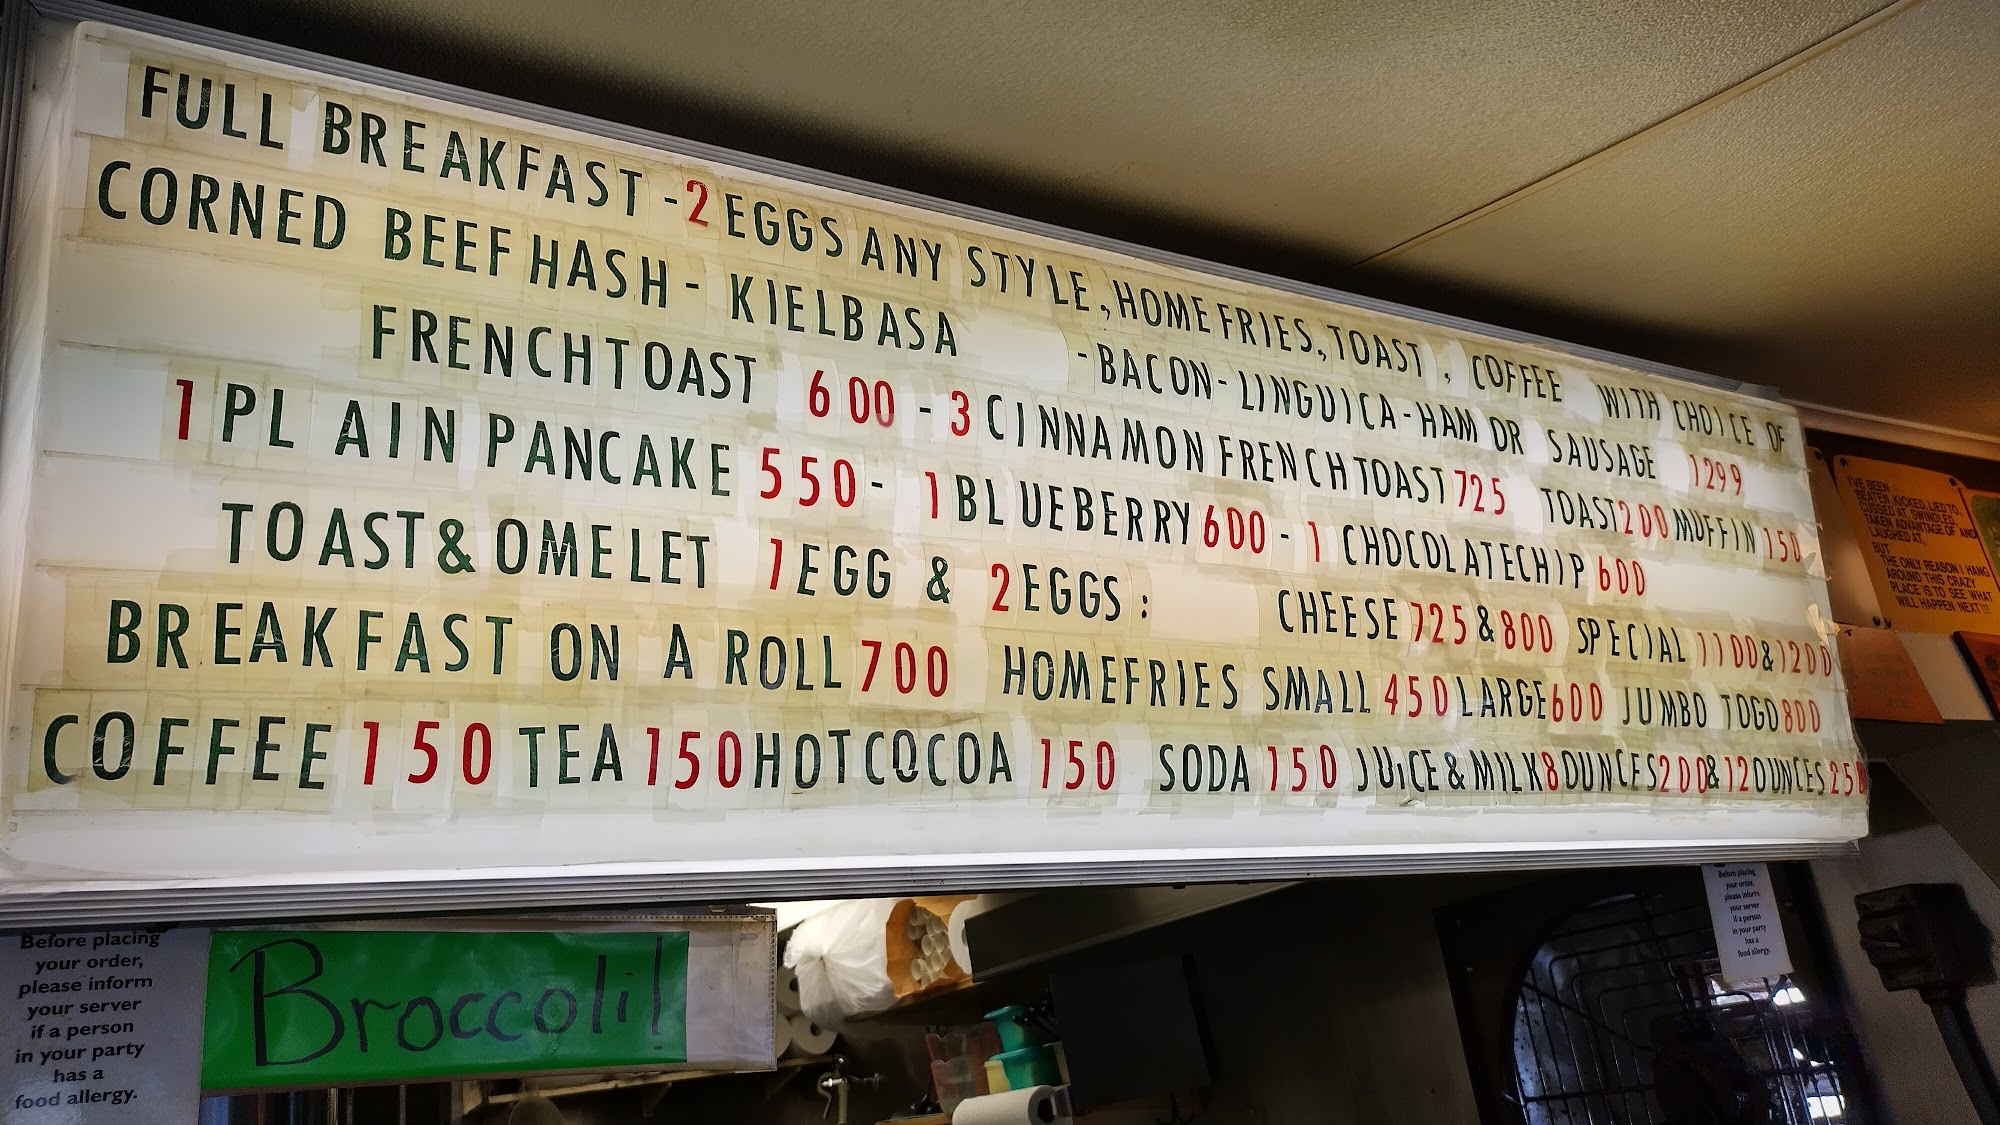 FULL BREAKFAST -2 EGGS ANY STYLE, HOMEFRIES, TOAST, COFFEE WITH CHOICE OF
CORNED BEEF HASH - KIELBASA -BACON- LINGUICA-HAM OR SAUSAGE 1299
FRENCH TOAST 600 - 3 CINNAMON FRENCH TOAST 725 TOAST 200 MUFFIN 150
1 PLAIN PANCAKE 550- 1 BLUEBERRY 600 - 1 CHOCOLATECHIP 600
TOAST & OMELET 1 EGG & 2 EGGS: CHEESE 725 & 800 SPECIAL 1100 & 1200
BREAKFAST ON A ROLL 700 HOMEFRIES SMALL 450 LARGE 600 JUMBO TOGO 800
COFFEE 150 TEA 150 HOT COCOA 150 SODA 150 JUiCE & MILK 8 OUNCES 200 & 12 OUNCES 250
I'VE BEEN
BEATEN, KICKED, LIED TO
CUSSED AT, SWINDLED,
TAKEN ADVANTAGE OF AND
LAUGHED AT,
BUT
THE ONLY REASON I HANG
AROUND THIS CRAZY
PLACE IS TO SEE WHAT
WILL HAPPEN NEXT!!!
Before placing
your order,
please inform
your server
if a person
in your party
has a
food allergy.
Broccoli!
Before placing
your order,
please inform
your server
if a person
in your party
has a
food allergy.